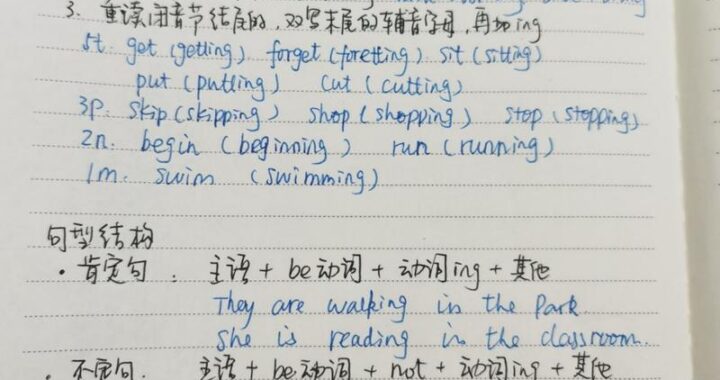 3. 重读闭音节结尾的,双写末尾的辅音字母,再加ing
5t. get (getting) forget (foretting) sit (sitting)
put (putting) cut (cutting)
3p. skip (skipping) shop (shopping) stop (stopping)
2n. begin (beginning) run (running)
1m. swim (swimming)
句型结构
· 肯定句: 主语 + be动词 + 动词ing + 其他
They are walking in the Park.
She is reading in the classroom.
· 不定句. 主语 + be动词 + not + 动词ing + 其他